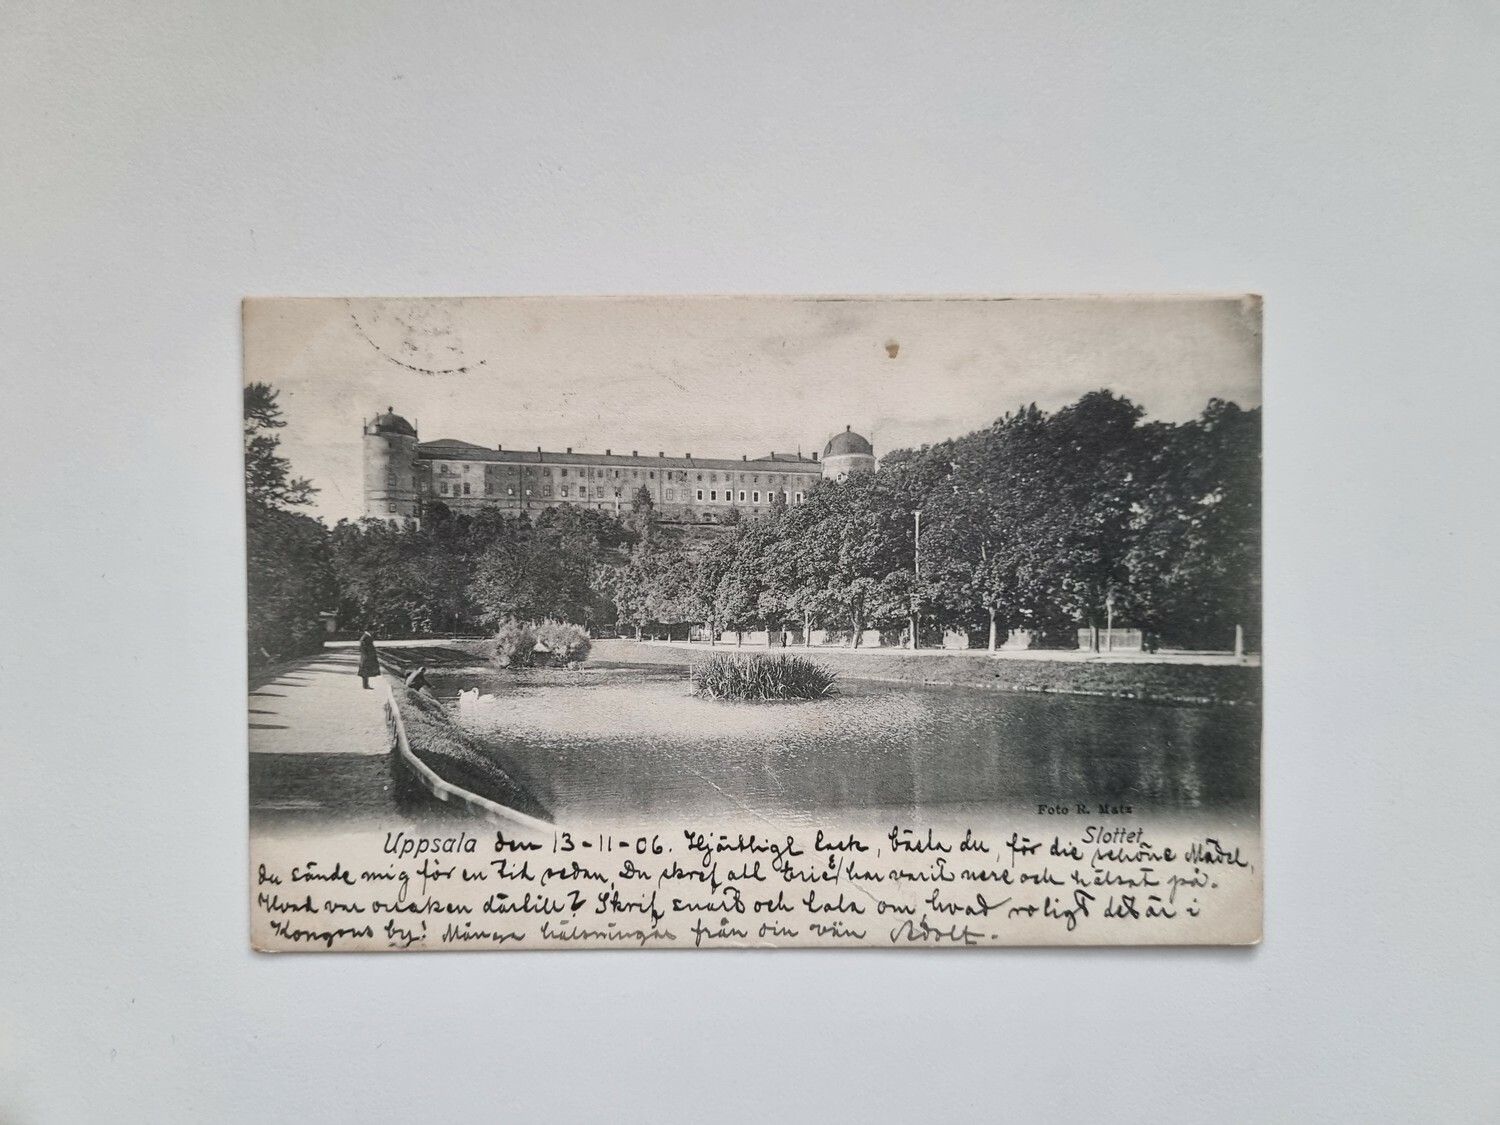 Foto R. Matz
Slottet
Uppsala den 13-11-06. Hjärtligt tack, bästa du, för die schöne Mädel,
du sände mig för en tid sedan. Du skref att Eric E. har varit nere och hälsat på.
Hvad var orsaken därtill? Skrif snart och tala om, hvad roligt det är i
Kongens by! Många hälsningar från din vän Adolf.